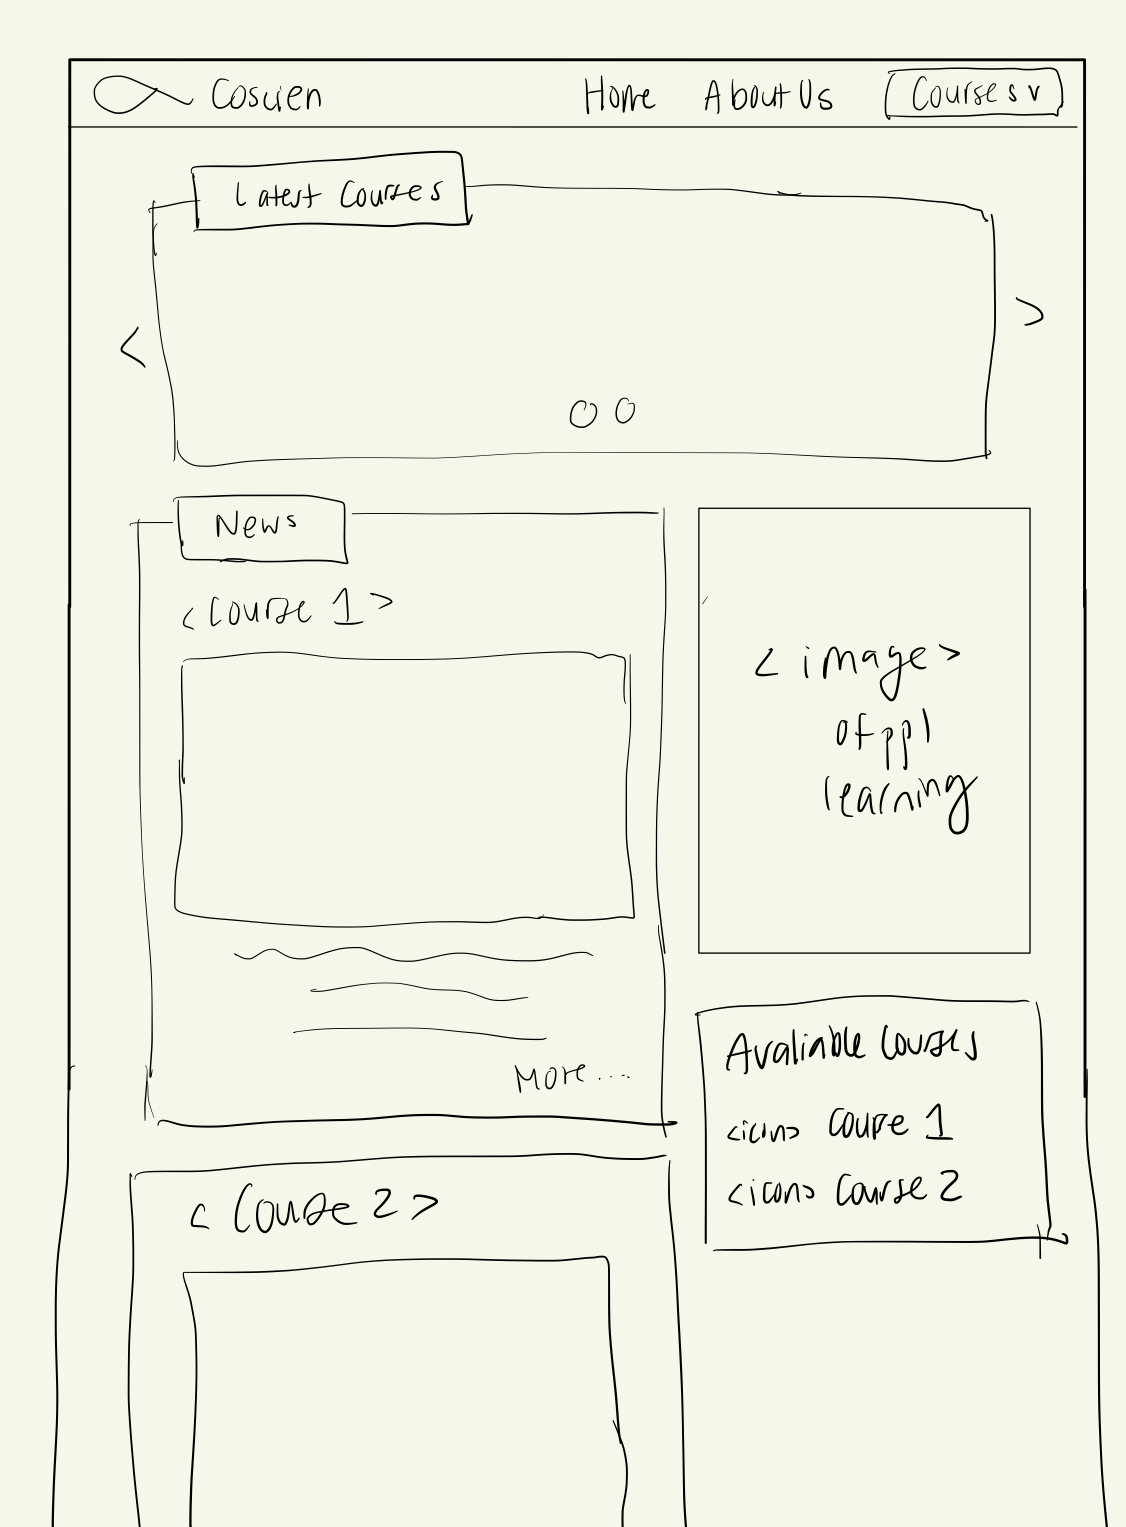 Coscien Home About Us Courses v
Latest Courses
<
>
News
<Course 1>
<image>
of ppl
learning
More...
Avaliable Courses
<icon> Course 1
<icon> Course 2
<Course 2>